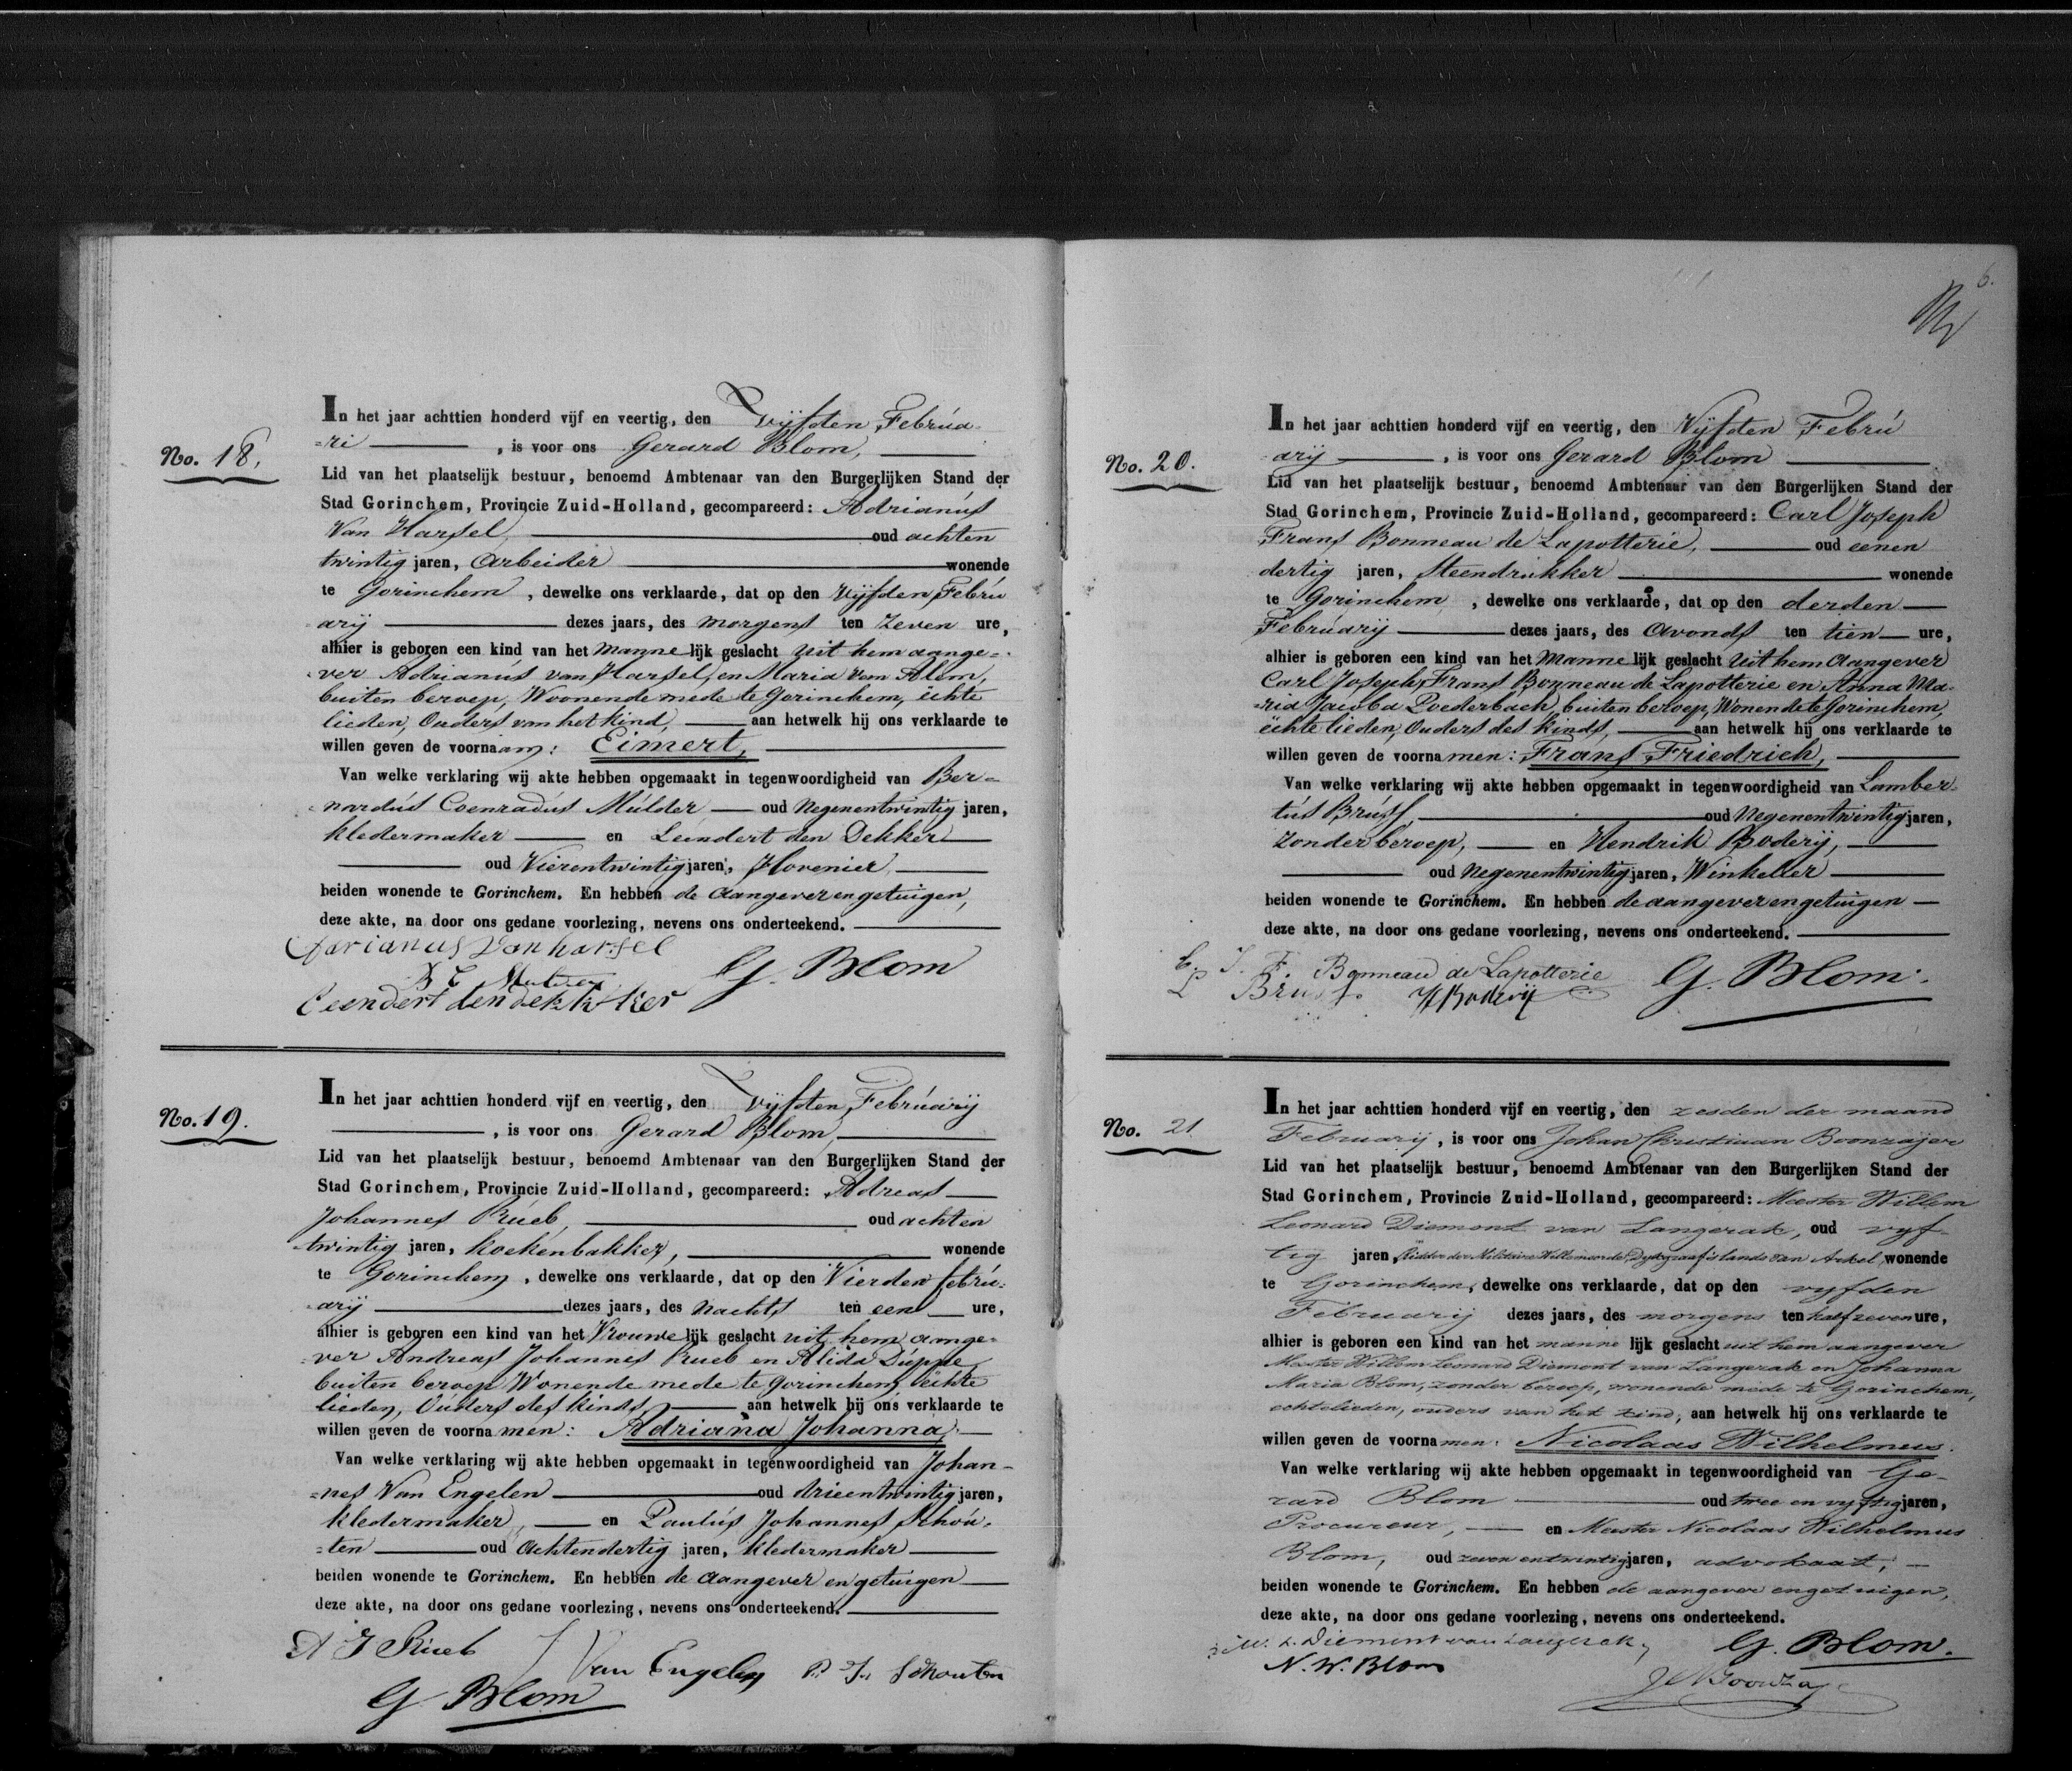 No. 18.
In het jaar achttien honderd vijf en veertig, den vijfden Februa
=ri, is voor ons Gerard Blom,
Lid van het plaatselijk bestuur, benoemd Ambtenaar van den Burgerlijken Stand der
Stad Gorinchem, Provincie Zuid-Holland, gecompareerd: Adrianus
Van Harsel, oud achten
twintig jaren, Arbeider wonende
te Gorinchem, dewelke ons verklaarde, dat op den Vijfden Febru
arij dezes jaars, des morgens ten zeven ure,
alhier is geboren een kind van het Mannelijk geslacht uit hem aange=
ver Adrianus van Harsel, en Maria van Alem,
buiten beroep, Woonende mede te Gorinchem, echte
lieden, Ouders van het kind, aan hetwelk hij ons verklaarde te
willen geven de voornaam: Eimert,
Van welke verklaring wij akte hebben opgemaakt in tegenwoordigheid van Ber=
nardus Coenradus Mulder oud Negenentwintig jaren,
kledermaker en Leendert den Dekker
oud Vierentwintig jaren, Hovenier,
beiden wonende te Gorinchem. En hebben de Aangever en getuigen,
deze akte, na door ons gedane voorlezing, nevens ons onderteekend.
Adrianus van harsel
B C Mulder G. Blom
Leendert den dekker
No. 19.
In het jaar achttien honderd vijf en veertig, den vijfden Februarij
, is voor ons Gerard Blom,
Lid van het plaatselijk bestuur, benoemd Ambtenaar van den Burgerlijken Stand der
Stad Gorinchem, Provincie Zuid-Holland, gecompareerd: Adreas
Johannes Rueb, oud achten
twintig jaren, koekenbakker, wonende
te Gorinchem, dewelke ons verklaarde, dat op den Vierden febru=
arij dezes jaars, des Nachts ten een ure,
alhier is geboren een kind van het Vrouwelijk geslacht uit hem aange=
ver Andreas Johannes Rueb en Alida Duppe,
buiten beroep Wonende mede te Gorinchem, echte
lieden, Ouders des kinds, aan hetwelk hij ons verklaarde te
willen geven de voornamen: Adriana Johanna,
Van welke verklaring wij akte hebben opgemaakt in tegenwoordigheid van Johan=
=nes Van Engelen oud drieentwintig jaren,
kledermaker, en Paulus Johannes Schou=
=ten oud Achtendertig jaren, kledermaker
beiden wonende te Gorinchem. En hebben de aangever en getuigen
deze akte, na door ons gedane voorlezing, nevens ons onderteekend.
A J Rueb J Van Engelen P. J. Schouten
G. Blom
6.
No. 20.
In het jaar achttien honderd vijf en veertig, den Vijfden Febru
arij, is voor ons Gerard Blom
Lid van het plaatselijk bestuur, benoemd Ambtenaar van den Burgerlijken Stand der
Stad Gorinchem, Provincie Zuid-Holland, gecompareerd: Carl Joseph
Frans Bonneau de Lapotterie, oud eenen
dertig jaren, Steendrukker wonende
te Gorinchem, dewelke ons verklaarde, dat op den derden
Februarij dezes jaars, des Avonds ten tien ure,
alhier is geboren een kind van het Mannelijk geslacht uit hem Aangever
Carl Joseph Frans Bonneau de Lapotterie en Anna Ma=
ria Jacoba Poederbach, buiten beroep, Wonende te Gorinchem,
echte lieden, Ouders des kinds, aan hetwelk hij ons verklaarde te
willen geven de voornamen: Frans Friedrich,
Van welke verklaring wij akte hebben opgemaakt in tegenwoordigheid van Lamber=
tus Bruss, oud Negenentwintig jaren,
zonder beroep, en Hendrik Boderij,
oud Negenentwintig jaren, Winkelier
beiden wonende te Gorinchem. En hebben de aangever en getuigen
deze akte, na door ons gedane voorlezing, nevens ons onderteekend.
C. J. F. Bonneau de Lapotterie G. Blom.
L Bruss. H Boderij
No. 21.
In het jaar achttien honderd vijf en veertig, den zesden der maand
Februarij, is voor ons Johan Christiaan Boonzajer
Lid van het plaatselijk bestuur, benoemd Ambtenaar van den Burgerlijken Stand der
Stad Gorinchem, Provincie Zuid-Holland, gecompareerd: Meester Willem
Leonard Diemont van Langerak, oud vyf-
tig jaren, Ridder der Militaire Willemsorde, Dykgraaf 's lands van Arkel, wonende
te Gorinchem, dewelke ons verklaarde, dat op den vyfden
Februarij dezes jaars, des morgens ten half zeven ure,
alhier is geboren een kind van het mannelijk geslacht uit hem aangever
Meester Willem Leonard Diemont van Langerak en Johanna
Maria Blom, zonder beroep, wonende mede te Gorinchem,
echtelieden, ouders van het kind, aan hetwelk hij ons verklaarde te
willen geven de voornamen: Nicolaas Wilhelmus.
Van welke verklaring wij akte hebben opgemaakt in tegenwoordigheid van Ge-
rard Blom oud twee en vyftig jaren,
Procureur, en Meester Nicolaas Wilhelmus
Blom, oud zeven en twintig jaren, advokaat,
beiden wonende te Gorinchem. En hebben de aangever en getuigen,
deze akte, na door ons gedane voorlezing, nevens ons onderteekend.
W. L. Diemont van Langerak, G. Blom.
N. W. Blom
J C Boonzaj